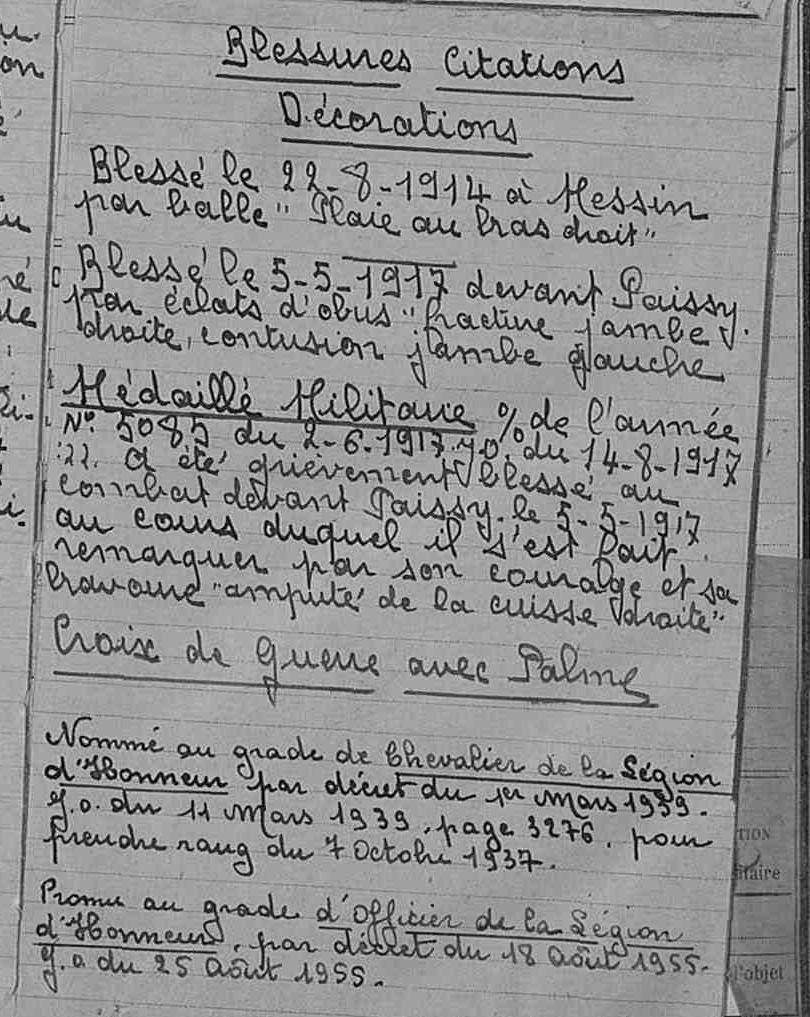 Blessures Citations
Décorations
Blessé le 22-8-1914 à Messin
par balle "Plaie au bras droit"
Blessé le 5-5-1917 devant Paissy.
par éclats d'obus "fracture jambe
droite, contusion jambe gauche
Médaillé Militaire % de l'année
N° 5085 du 2-6-1917. J.O. du 14-8-1917
:22. A été grièvement blessé au
combat devant Paissy. le 5-5-1917
au cours duquel il s'est fait
remarquer par son courage et sa
bravoure "amputé de la cuisse droite"
Croix de Guerre avec Palme
Nommé au grade de Chevalier de la Légion
d'Honneur par décret du 1er Mars 1939.
J.O. du 11 Mars 1939, page 3276, pour
prendre rang du 7 Octobre 1937.
Promu au grade d'Officier de la Légion
d'Honneur, par décret du 18 Août 1955.
J.O du 25 Août 1955.
TION
itaire
l'objet